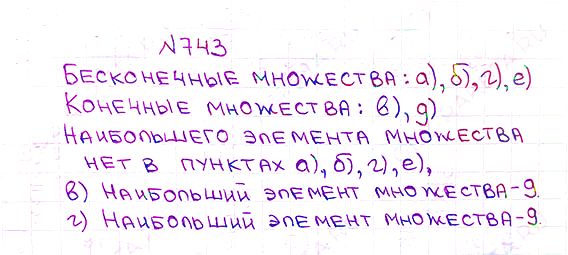 №743
БЕСКОНЕЧНЫЕ МНОЖЕСТВА: а), б), г), е)
КОНЕЧНЫЕ МНОЖЕСТВА: в), д)
НАИБОЛЬШЕГО ЭЛЕМЕНТА МНОЖЕСТВА
НЕТ В ПУНКТАХ а), б), г), е),
в) НАИБОЛЬШИЙ ЭЛЕМЕНТ МНОЖЕСТВА-9.
г) НАИБОЛЬШИЙ ЭЛЕМЕНТ МНОЖЕСТВА-9.